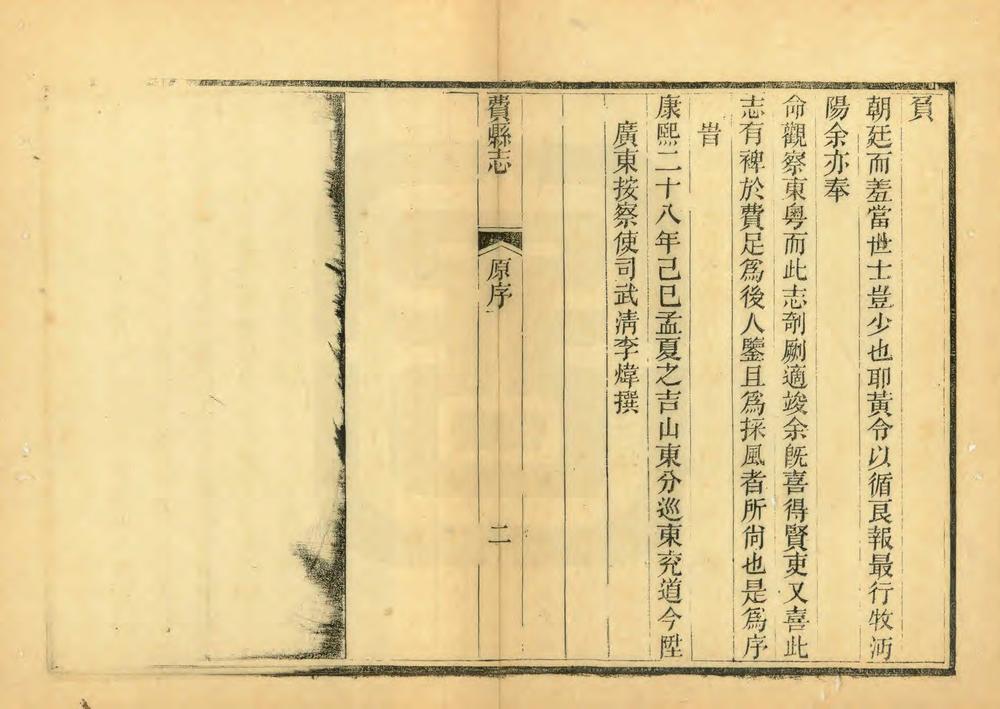 負
朝廷而羞當世士豈少也耶黃令以循良報最行牧沔
陽余亦奉
命觀察東粵而此志剞劂適竣余旣喜得賢吏又喜此
志有裨於費足爲後人鑒且爲採風者所尙也是爲序
旹
康熙二十八年己巳孟夏之吉山東分巡東兗道今陞
廣東按察使司武淸李煒撰
費縣志
原序
二